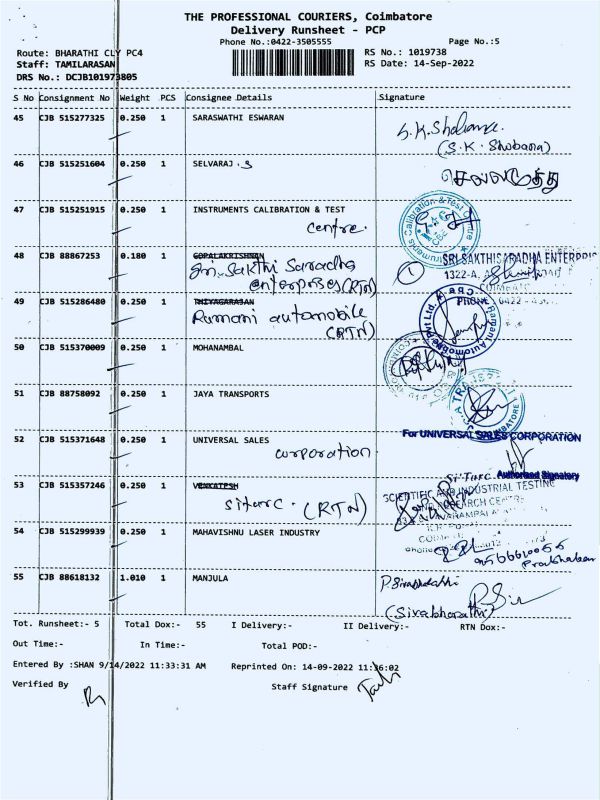 THE PROFESSIONAL COURIERS, Coimbatore
Delivery Runsheet - PCP
Phone No.:0422-3505555 Page No.:5
Route: BHARATHI CLY PC4 RS No.: 1019738
Staff: TAMILARASAN RS Date: 14-Sep-2022
DRS No.: DCJB101973805
S No Consignment No Weight PCS Consignee Details Signature
45 CJB 515277325 0.250 1 SARASWATHI ESWARAN
(S.K. Shobana)
46 CJB 515251604 0.250 1 SELVARAJ .S
47 CJB 515251915 0.250 1 INSTRUMENTS CALIBRATION & TEST
centre.
Instruments Calibration & Test Centre
CBE
48 CJB 88867253 0.180 1 GOPALAKRISHNAN
Sri. Sakthi Saradha
enterprises (RTN)
1
SRI SAKTHI SARADHA ENTERPRIS
1322-A,
COIMBATO
PHONE : 0422 -
49 CJB 515286480 0.250 1 THIYAGARAJAN
Ramani automobile
(RTN)
Ramani Automobile Pvt Ltd. CBE
50 CJB 515370009 0.250 1 MOHANAMBAL
51 CJB 88758092 0.250 1 JAYA TRANSPORTS
52 CJB 515371648 0.250 1 UNIVERSAL SALES
corporation.
For UNIVERSAL SALES CORPORATION
Authorised Signatory
53 CJB 515357246 0.250 1 VENKATESH
sitarc. (RTN)
Si'Tarc
SCIENTIFIC AND INDUSTRIAL TESTING
54 CJB 515299939 0.250 1 MAHAVISHNU LASER INDUSTRY
Prabhakaran
55 CJB 88618132 1.010 1 MANJULA
(Sivabharathi)
Tot. Runsheet:- 5 Total Dox:- 55 I Delivery:- II Delivery:- RTN Dox:-
Out Time:- In Time:- Total POD:-
Entered By :SHAN 9/14/2022 11:33:31 AM Reprinted On: 14-09-2022 11:36:02
Verified By Staff Signature